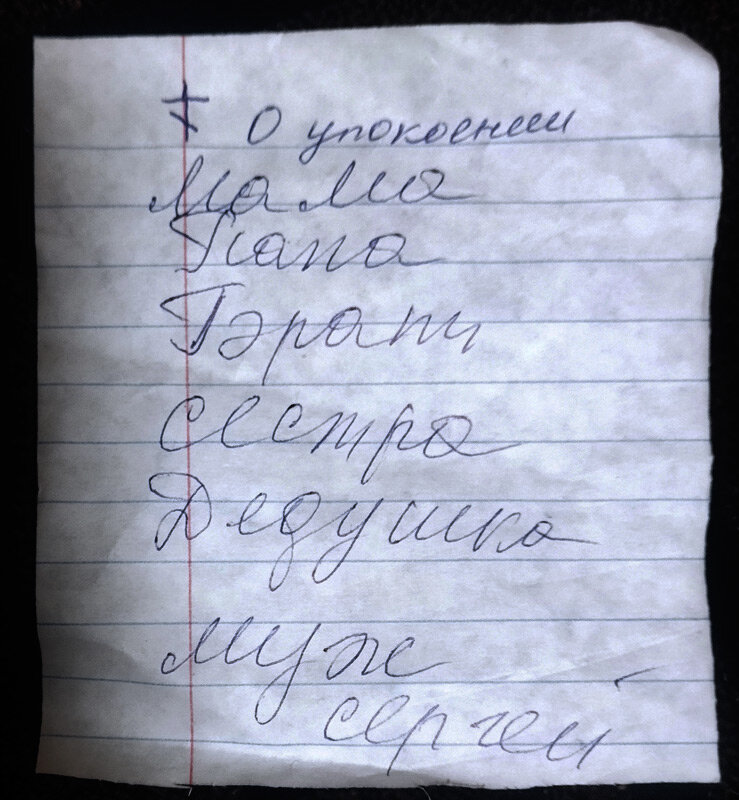 О упокоении
Мама
Папа
сестра
Дедушка
муж
сергей